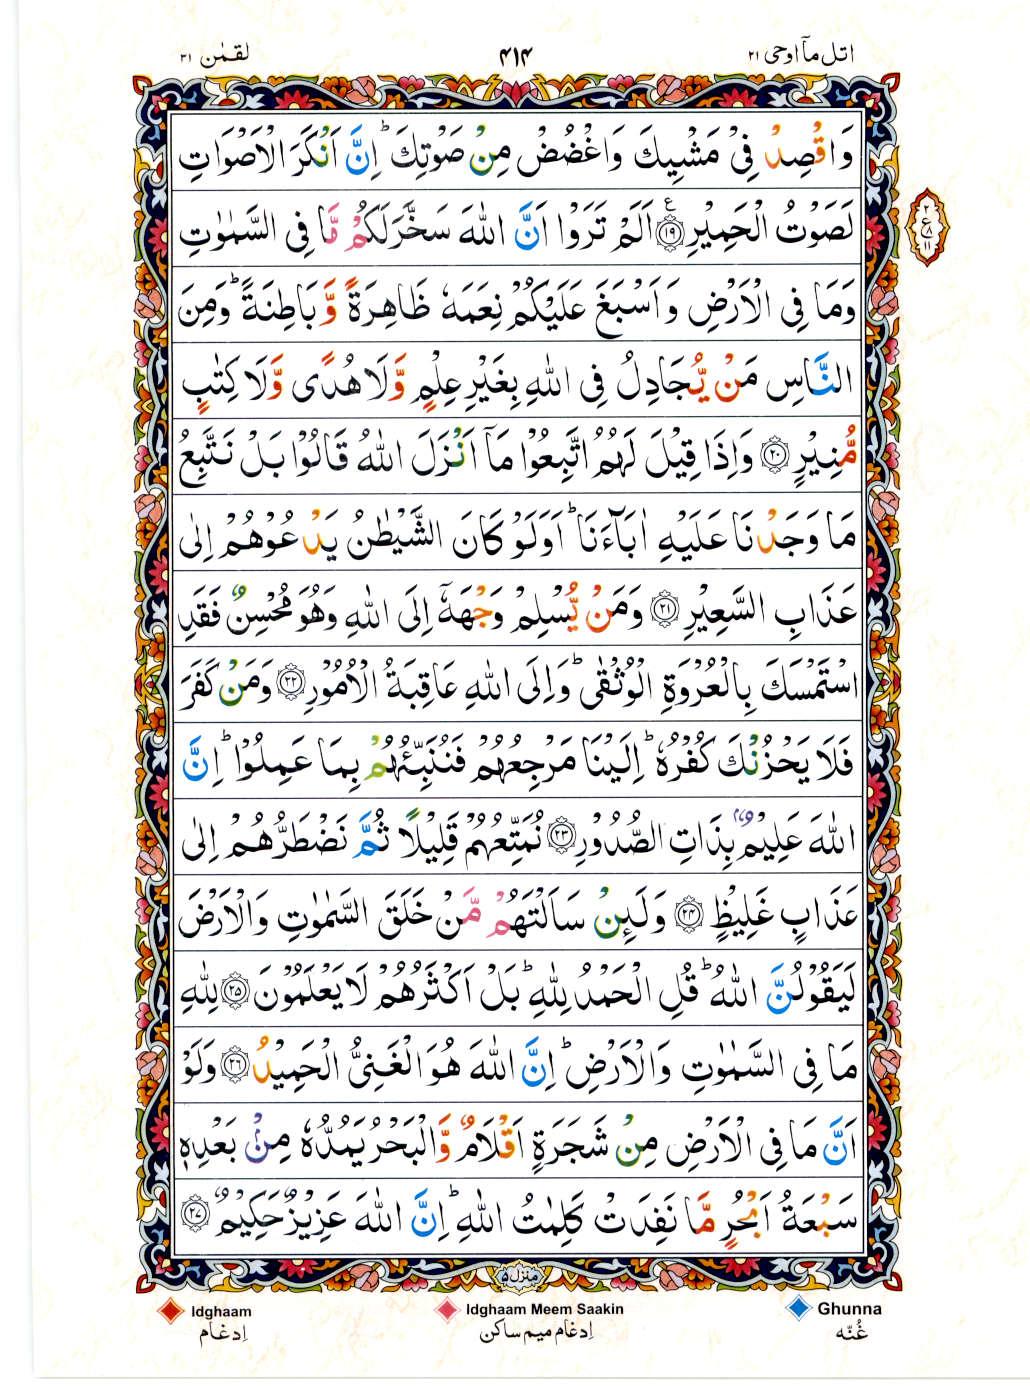 اتل مآ اوحی ۲۱
۴۱۴
لقمٰن ۳۱
وَاقْصِدْ فِیْ مَشْیِكَ وَاغْضُضْ مِنْ صَوْتِكَ ؕ اِنَّ اَنْكَرَ الْاَصْوَاتِ
لَصَوْتُ الْحَمِیْرِ ﴿۱۹﴾ اَلَمْ تَرَوْا اَنَّ اللّٰهَ سَخَّرَ لَكُمْ مَّا فِی السَّمٰوٰتِ
وَمَا فِی الْاَرْضِ وَاَسْبَغَ عَلَیْكُمْ نِعَمَهٗ ظَاهِرَةً وَّبَاطِنَةً ؕ وَمِنَ
النَّاسِ مَنْ یُّجَادِلُ فِی اللّٰهِ بِغَیْرِ عِلْمٍ وَّلَا هُدًی وَّلَا كِتٰبٍ
مُّنِیْرٍ ﴿۲۰﴾ وَاِذَا قِیْلَ لَهُمُ اتَّبِعُوْا مَاۤ اَنْزَلَ اللّٰهُ قَالُوْا بَلْ نَتَّبِعُ
مَا وَجَدْنَا عَلَیْهِ اٰبَآءَنَا ؕ اَوَلَوْ كَانَ الشَّیْطٰنُ یَدْعُوْهُمْ اِلٰی
عَذَابِ السَّعِیْرِ ﴿۲۱﴾ وَمَنْ یُّسْلِمْ وَجْهَهٗۤ اِلَی اللّٰهِ وَهُوَ مُحْسِنٌ فَقَدِ
اسْتَمْسَكَ بِالْعُرْوَةِ الْوُثْقٰی ؕ وَاِلَی اللّٰهِ عَاقِبَةُ الْاُمُوْرِ ﴿۲۲﴾ وَمَنْ كَفَرَ
فَلَا یَحْزُنْكَ كُفْرُهٗ ؕ اِلَیْنَا مَرْجِعُهُمْ فَنُنَبِّئُهُمْ بِمَا عَمِلُوْا ؕ اِنَّ
اللّٰهَ عَلِیْمٌۢ بِذَاتِ الصُّدُوْرِ ﴿۲۳﴾ نُمَتِّعُهُمْ قَلِیْلًا ثُمَّ نَضْطَرُّهُمْ اِلٰی
عَذَابٍ غَلِیْظٍ ﴿۲۴﴾ وَلَئِنْ سَاَلْتَهُمْ مَّنْ خَلَقَ السَّمٰوٰتِ وَالْاَرْضَ
لَیَقُوْلُنَّ اللّٰهُ ؕ قُلِ الْحَمْدُ لِلّٰهِ ؕ بَلْ اَكْثَرُهُمْ لَا یَعْلَمُوْنَ ﴿۲۵﴾ لِلّٰهِ
مَا فِی السَّمٰوٰتِ وَالْاَرْضِ ؕ اِنَّ اللّٰهَ هُوَ الْغَنِیُّ الْحَمِیْدُ ﴿۲۶﴾ وَلَوْ
اَنَّ مَا فِی الْاَرْضِ مِنْ شَجَرَةٍ اَقْلَامٌ وَّالْبَحْرُ یَمُدُّهٗ مِنْۢ بَعْدِهٖ
سَبْعَةُ اَبْحُرٍ مَّا نَفِدَتْ كَلِمٰتُ اللّٰهِ ؕ اِنَّ اللّٰهَ عَزِیْزٌ حَكِیْمٌ ﴿۲۷﴾
۲
ع
۸
۱۱
منزل ۵
Ghunna
غُنّه
Idghaam Meem Saakin
اِدغام میم ساکن
Idghaam
اِدغام